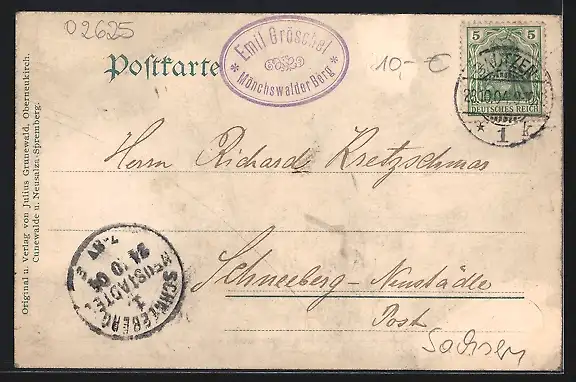 02625
Postkarte
Emil Gröschel
* Mönchswalder Berg *
10,- €
5 5
DEUTSCHES REICH
BAUTZEN
23.10.04
* 1 k
Herrn Richard Kretzschmar
Schneeberg-Neustädtel
Post
Sachsen
SCHNEEBERG-
NEUSTÄDTEL
1.
24 10 04
7-8V
Original u. Verlag von Julius Grunewald, Oberneukirch.
Cunewalde u. Neusalza-Spremberg.